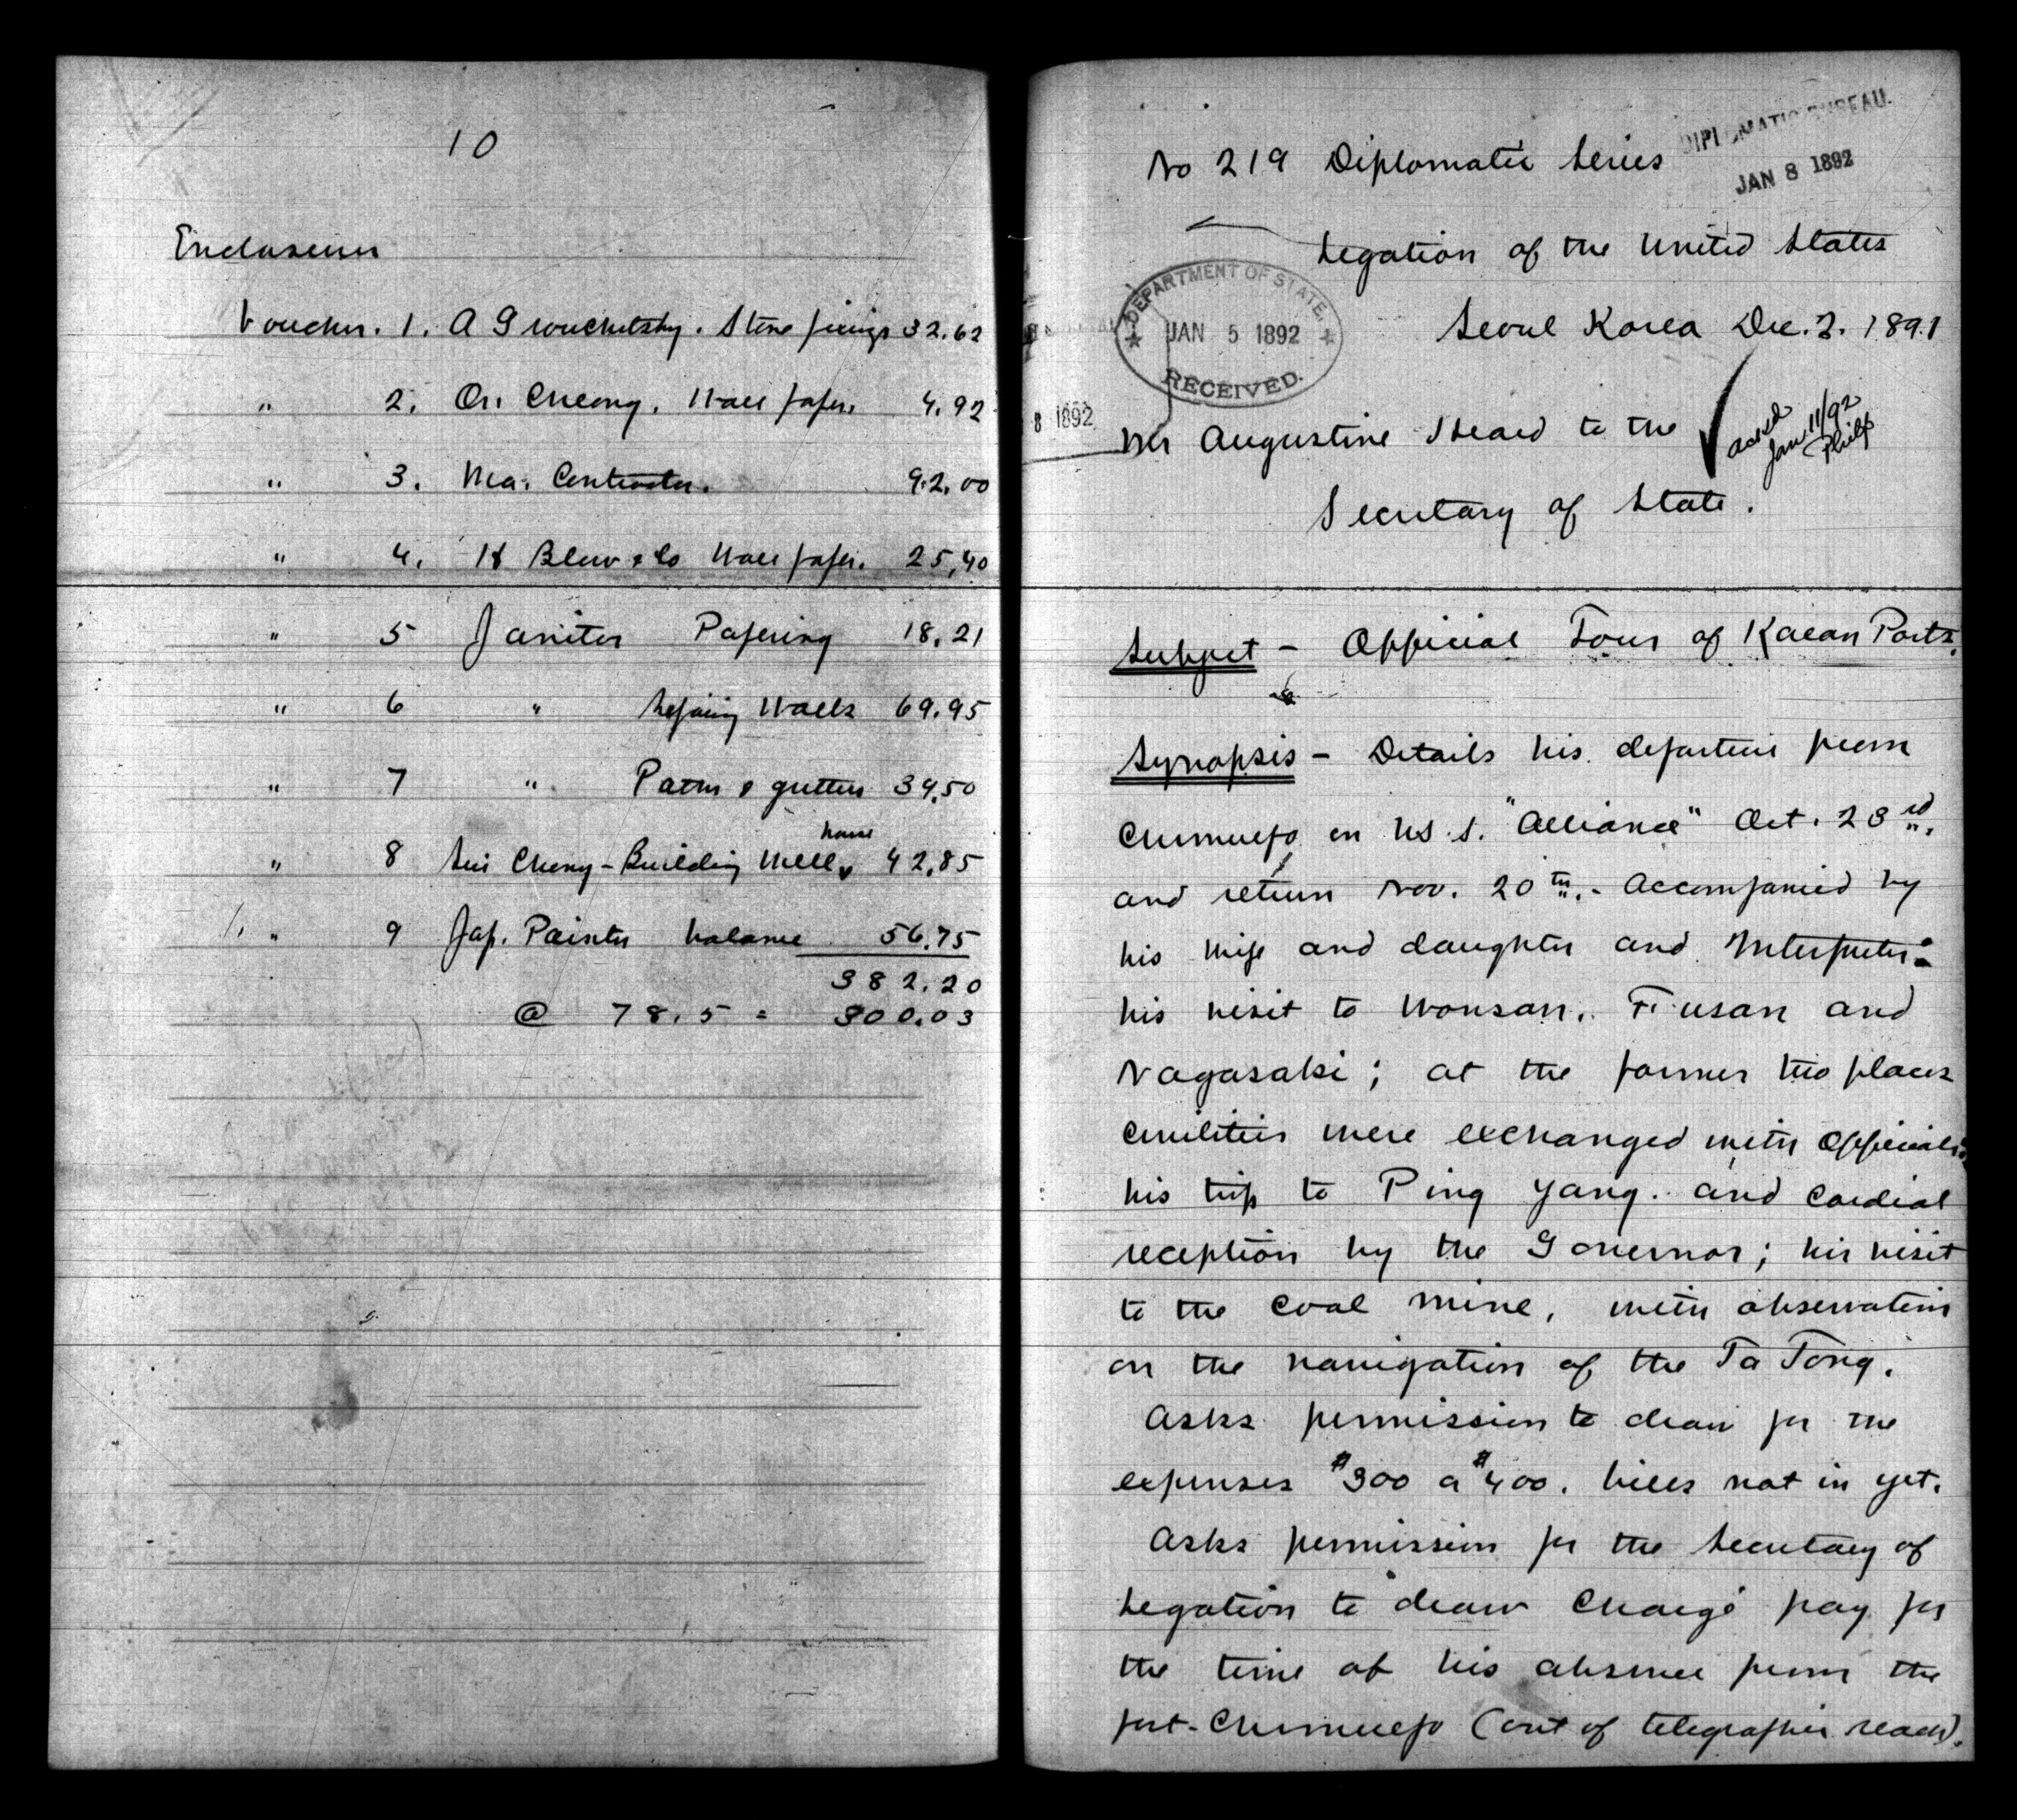 10
Enclosures
Voucher. 1. A Grouchetsky. Stove fixings 32.62
" 2. On Cheong. Wall paper. 4.92
" 3. Ma. Contractor. 92.00
" 4. H Blow & Co Wall paper. 25,40
" 5 Janitor Papering 18.21
" 6 " Repairing Walls 69.95
" 7 " Paths & gutters 39.50
house
" 8 Sui Cheong - Building Well 42.85
" 9 Jap. Painter balance 56.75
382.20
@ 78.5 = 300.03
DIPLOMATIC BUREAU.
JAN 8 1892
No 219 Diplomatic Series
Legation of the United States
Seoul Korea Dec. 3. 1891
DEPARTMENT OF STATE.
JAN 5 1892
RECEIVED.
8 1892
Mr Augustine Heard to the
Secretary of State.
Ackd
Jan 11/92
Philp
Subject - Official Tour of Korean Ports.
Synopsis - Details his departure from
Chemulpo on U.S.S. "Alliance" Oct. 23rd.
and return Nov. 20th. - accompanied by
his wife and daughter and Interpreter:
his visit to Wonsan. Fusan and
Nagasaki; at the former two places
civilities were exchanged with Officials:
his trip to Ping Yang. and cordial
reception by the Governor; his visit
to the coal mine, with observations
on the navigation of the Ta Tong.
Asks permission to draw for the
expenses $300 a $400. bills not in yet.
Asks permission for the Secretary of
Legation to draw Chargé pay for
the time of his absence from the
port - Chemulpo (out of telegraphic reach).